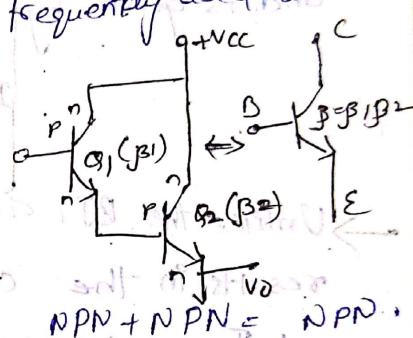 frequently
+VCC
C
n
B
P
Q1 (β1)
β=β1β2
n
n
P
Q2 (β2)
E
n
V0
NPN + NPN = NPN.